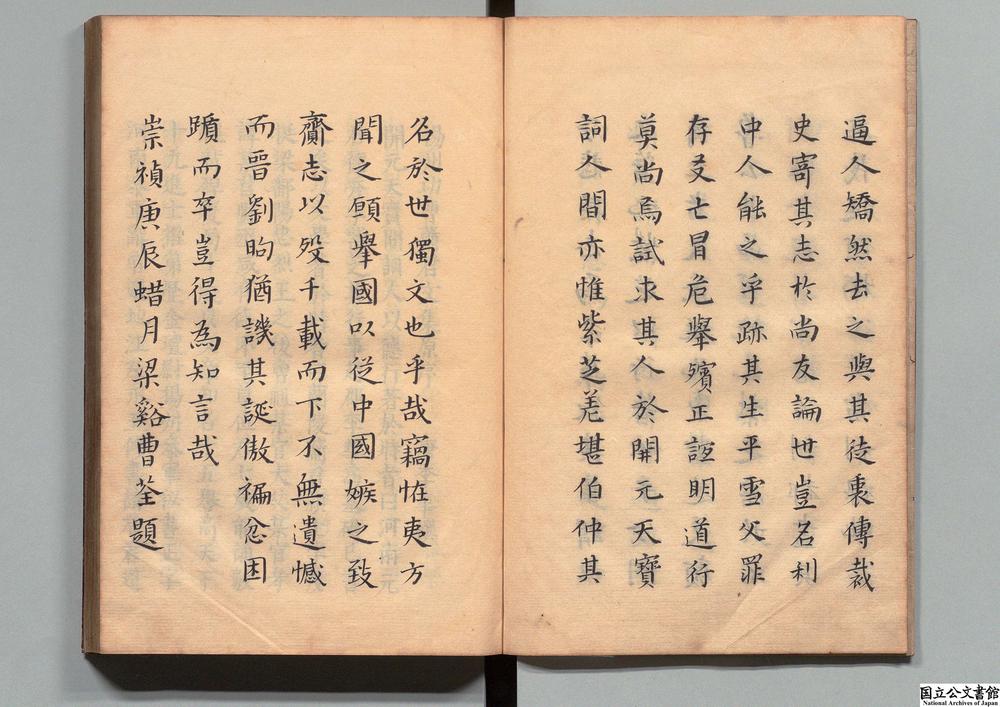 逼人矯然去之與其徒裒傳裁
史寄其志於尚友論世豈名利
中人能之乎跡其生平雪父罪
存友亡冒危舉殯正誼明道行
莫尚焉試求其人於開元天寶
詞人間亦惟紫芝差堪伯仲其
名於世獨文也乎哉竊恠夷方
聞之願舉國以從中國嫉之致
齎志以歿千載而下不無遺憾
而晉劉昫猶譏其誕傲褊忿困
躓而卒豈得為知言哉
崇禎庚辰蜡月梁谿曹荃題
国立公文書館
National Archives of Japan